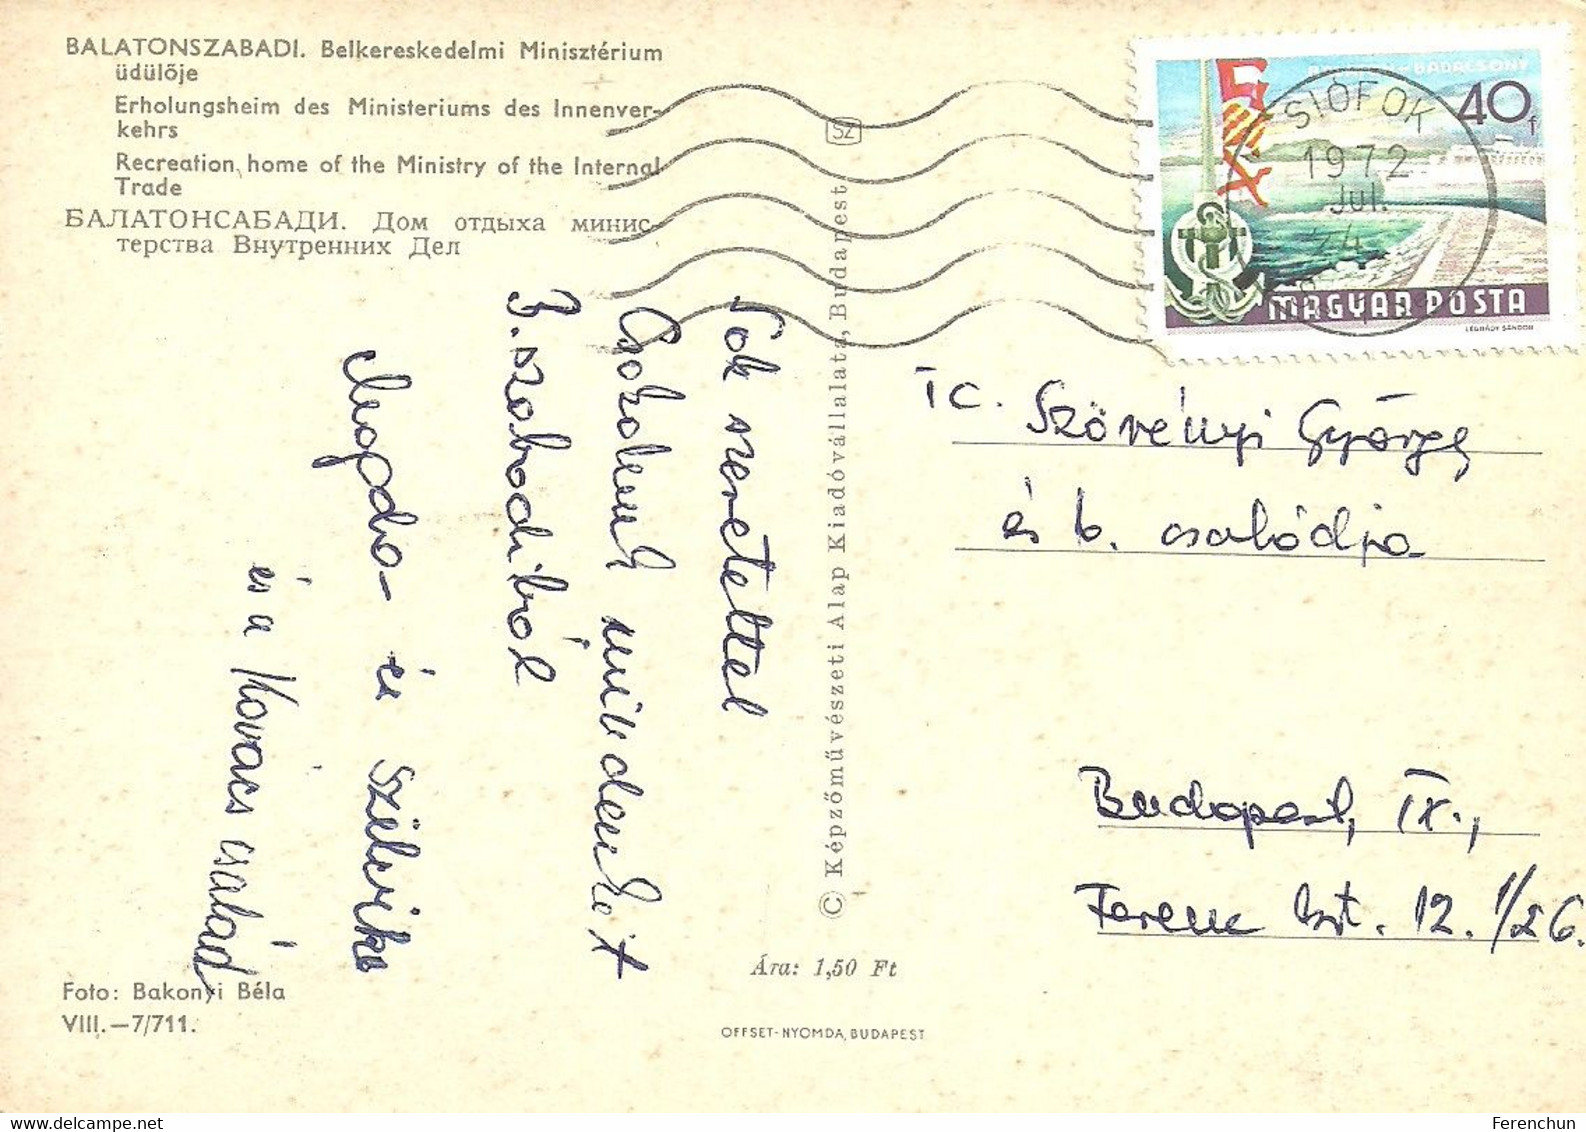 BALATONSZABADI. Belkereskedelmi Minisztérium
üdülője
Erholungsheim des Ministeriums des Innenver-
kehrs
Recreation home of the Ministry of the Internal
Trade
БАЛАТОНСАБАДИ. Дом отдыха минис-
терства Внутренних Дел
Sok szeretettel
Csókolunk mindenkit
B.szabadiból
Magda- és Szilvika
és a Kovács család
Foto: Bakonyi Béla
VIII.—7/711.
SZ
© Képzőművészeti Alap Kiadóvállalata, Budapest
Ára: 1,50 Ft
OFFSET-NYOMDA, BUDAPEST
BADACSONY
40f
SIÓFOK
1972
Jul.
MAGYAR POSTA
LÉGRÁDY SÁNDOR
Tc. Szövényi György
és b. családja
Budapest, IX.,
Ferenc krt. 12. 1/26.
Ferenchun